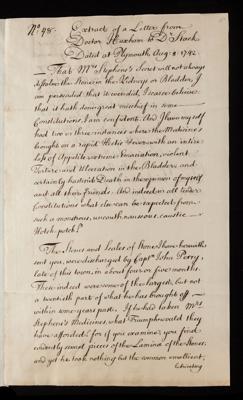 No. 98.
Extract of a Letter from
Doctor Huxham to Dr. Stack
Dated at Plymouth Aug. 2. 1742.
That Mrs. Stephens's Secret will not always
dissolve the Stone in the Kidneys or Bladder, I
am persuaded that it ever did, I scarce believe
that it hath done great mischief in some
Constitutions, I am confident. And I have myself
had two or three instances where the Medicines
brought on a rapid Hectic Fever with an entire
Loss of Appetite extreme Emaciation, violent
Torture and Ulceration in the Bladder and
certainly hastened Death in the opinion of myself
and all their Friends. And indeed in all tender
Constitutions what else can be expected from
such a monstrous, uncouth nauseous, caustic
Hotch-potch?
The Stones and Scales of Stones I have herewith
sent you, were discharged by Captn. John Perry
late of this town, in about four or five months.
These indeed were some of the largest, but not
a twentieth part of what he has brought off
within some years past. If he had taken Mrs.
Stephens's Medicines, what Triumph would they
have afforded! for if you examine you find
evidently several pieces of the Lamina of the Stones,
and yet he took nothing but the common emollient,